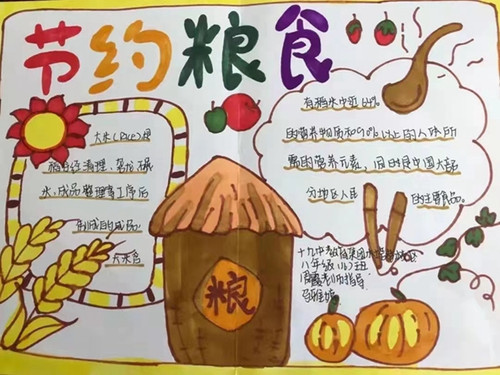 节约粮食
大米(Rice)是
稻谷经清理、砻谷、碾
米、成品整理等工序后
制成的成品.
大米含
有稻米中近64%
的营养物质和90%以上的人体所
需的营养元素，同时是中国大部
分地区人民的主要食品。
粮
八年级